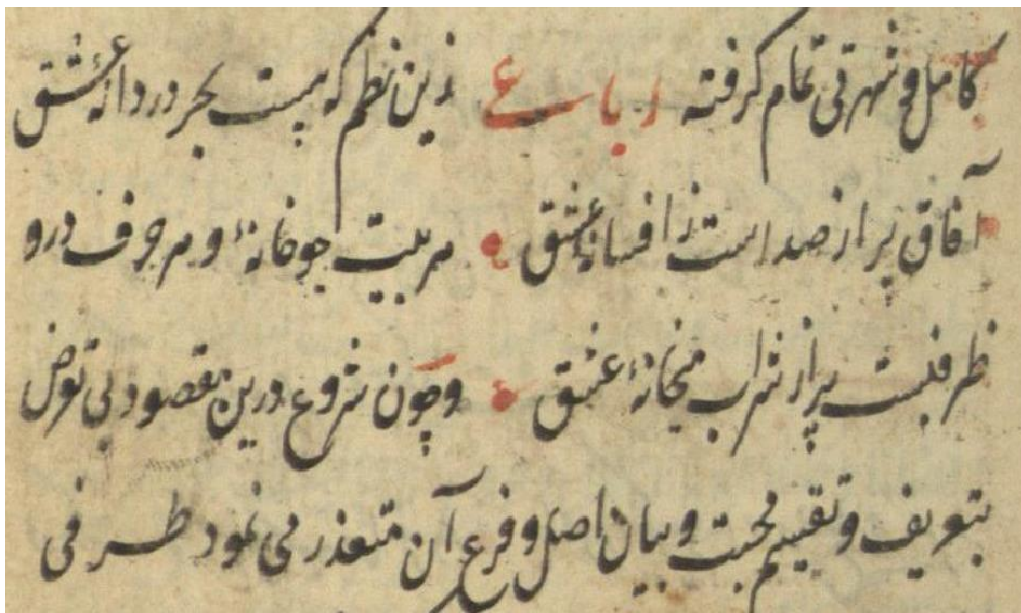 کامل و شهرتی تمام گرفته رباعی زین نظم که هست بحر دردانهٔ عشق
آفاق پر از صداست ز افسانهٔ عشق هر بیت چو خانهٔ و هر حرف درو
ظرفیست پر از شراب میخانهٔ عشق و چون شروع درین مقصود بی تعرض
بتعریف و تقسیم محبت و بیان اصل و فرع آن متعذر می نمود طرفی